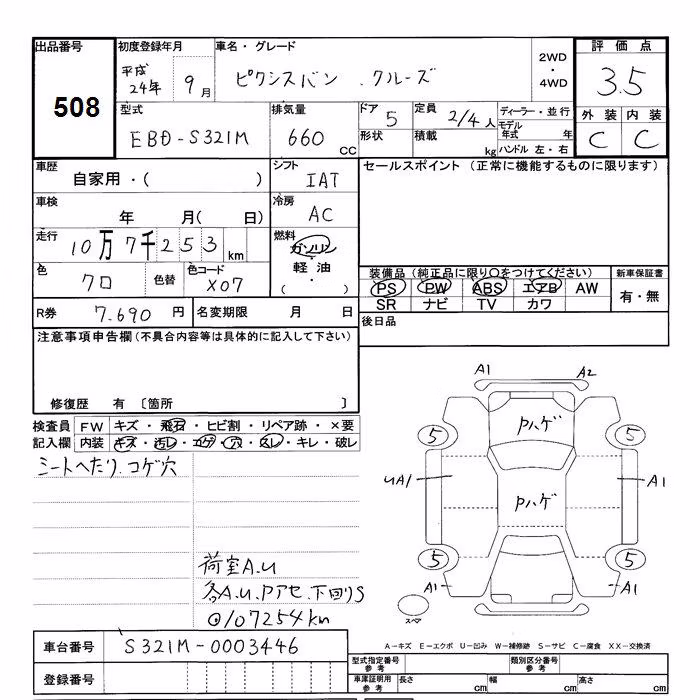 出品番号 初度登録年月 車名・グレード 2WD ・ 4WD 評価点
508 平成 24年 9月 ピクシスバン クルーズ 3.5
型式 排気量 ドア 定員 ディーラー・並行 外装 内装
EBD-S321M 660 cc 5 2/4人 モデル年式 年 C C
形状 積載 kg ハンドル 左・右
車歴 シフト セールスポイント (正常に機能するものに限ります)
自家用・( ) IAT
車検 冷房
年 月( 日) AC
走行 燃料
10万7千253km ガソリン・軽油・( )
色 色替 色コード 装備品 (純正品に限り○をつけてください) 新車保証書
クロ X07 PS PW ABS エアB AW 有・無
SR ナビ TV カワ
R券 7.690円 名変期限 月 日 後日品
注意事項申告欄 (不具合内容等は具体的に記入して下さい)
修復歴 有 〔箇所 〕
検査員記入欄 FW キズ・飛石・ヒビ割・リペア跡・×要
内装 キズ・汚レ・コゲ・穴・スレ・キレ・破レ
シートへたり.コゲ穴
荷室A.U
各A.U.Pアセ.下回りS
◎107254km
A1 A2
Pハゲ
5 5
UA1 Pハゲ A1
5 5
A1 A1
スペア
A-キズ E-エクボ U-凹み W-補修跡 S-サビ C-腐食 XX-交換済
車台番号 S321M-0003446
型式指定番号 参考 類別区分番号 参考
登録番号
車庫証明用 参考 長さ cm 幅 cm 高さ cm